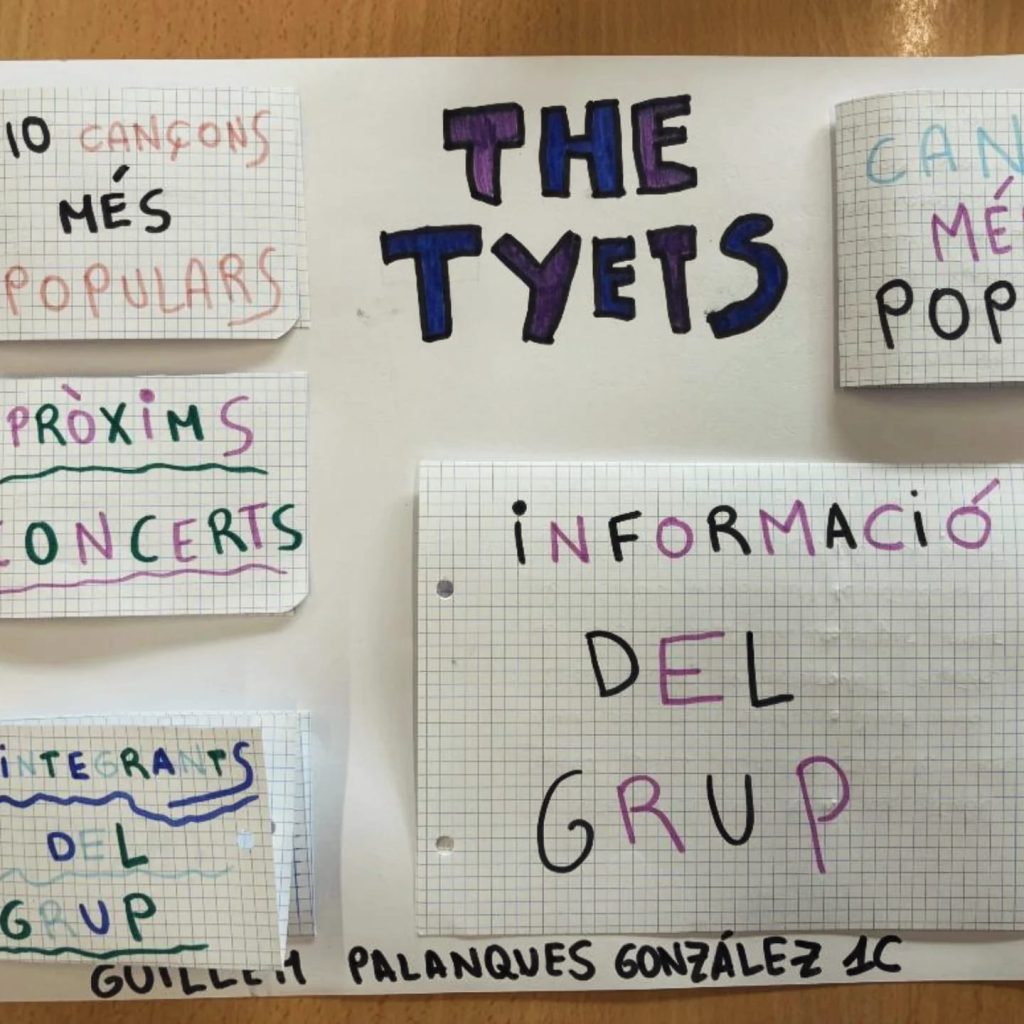 10 CANÇONS
MÉS
POPULARS
THE
TYETS
MÉ
POP
PRÒXIMS
CONCERTS
INFORMACIÓ
DEL
GRUP
INTEGRANTS
DEL
GRUP
GUILLEM PALANQUES GONZÁLEZ 1C